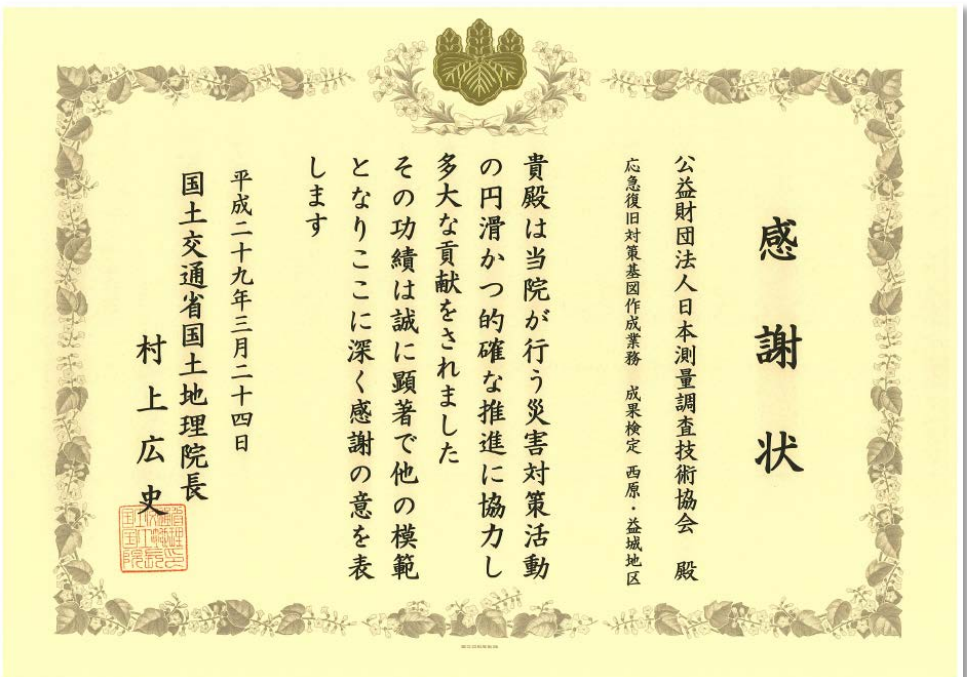 感謝状
公益財団法人日本測量調査技術協会 殿
応急復旧対策基図作成業務 成果検定 西原・益城地区
貴殿は当院が行う災害対策活動
の円滑かつ的確な推進に協力し
多大な貢献をされました
その功績は誠に顕著で他の模範
となりここに深く感謝の意を表
します
平成二十九年三月二十四日
国土交通省国土地理院長
村上広史